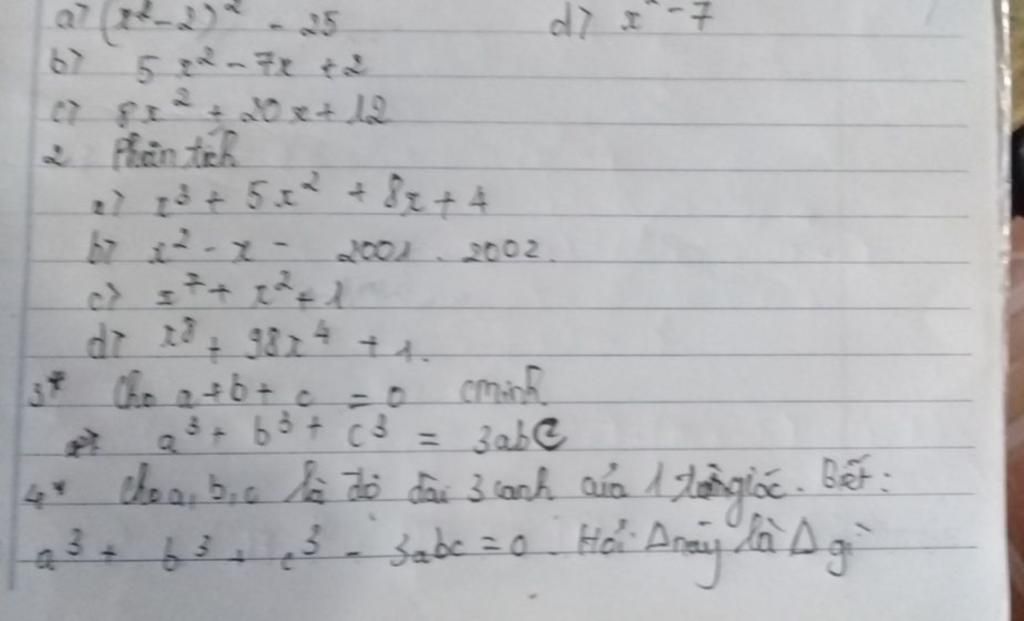 a) (x² - 2)² - 25 d) x² - 7
b) 5x² - 7x + 2
c) 8x² + 20x + 12
2 Phân tích
a) x³ + 5x² + 8x + 4
b) x² - x - 2001 . 2002.
c) x⁷ + x² + 1
d) x⁸ + 98x⁴ + 1.
3* Cho a + b + c = 0 cminh
a³ + b³ + c³ = 3abc
4* Cho a, b, c là độ dài 3 cạnh của 1 tam giác. Biết:
a³ + b³ + c³ - 3abc = 0. Hỏi Δ này là Δ gì